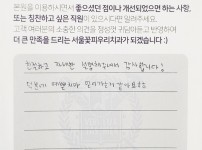 본원을 이용하시면서 좋으셨던 점이나 개선되었으면 하는 사항,
또는 칭찬하고 싶은 직원이 있으시다면 말씀해주세요.
고객 여러분의 소중한 의견을 정성껏 귀담아듣고 반영하여
더 큰 만족을 드리는 서울꽃피우리치과가 되겠습니다 :)
친절하고 자세한 설명해주셔서 감사합니다!
덕분에 예쁘게